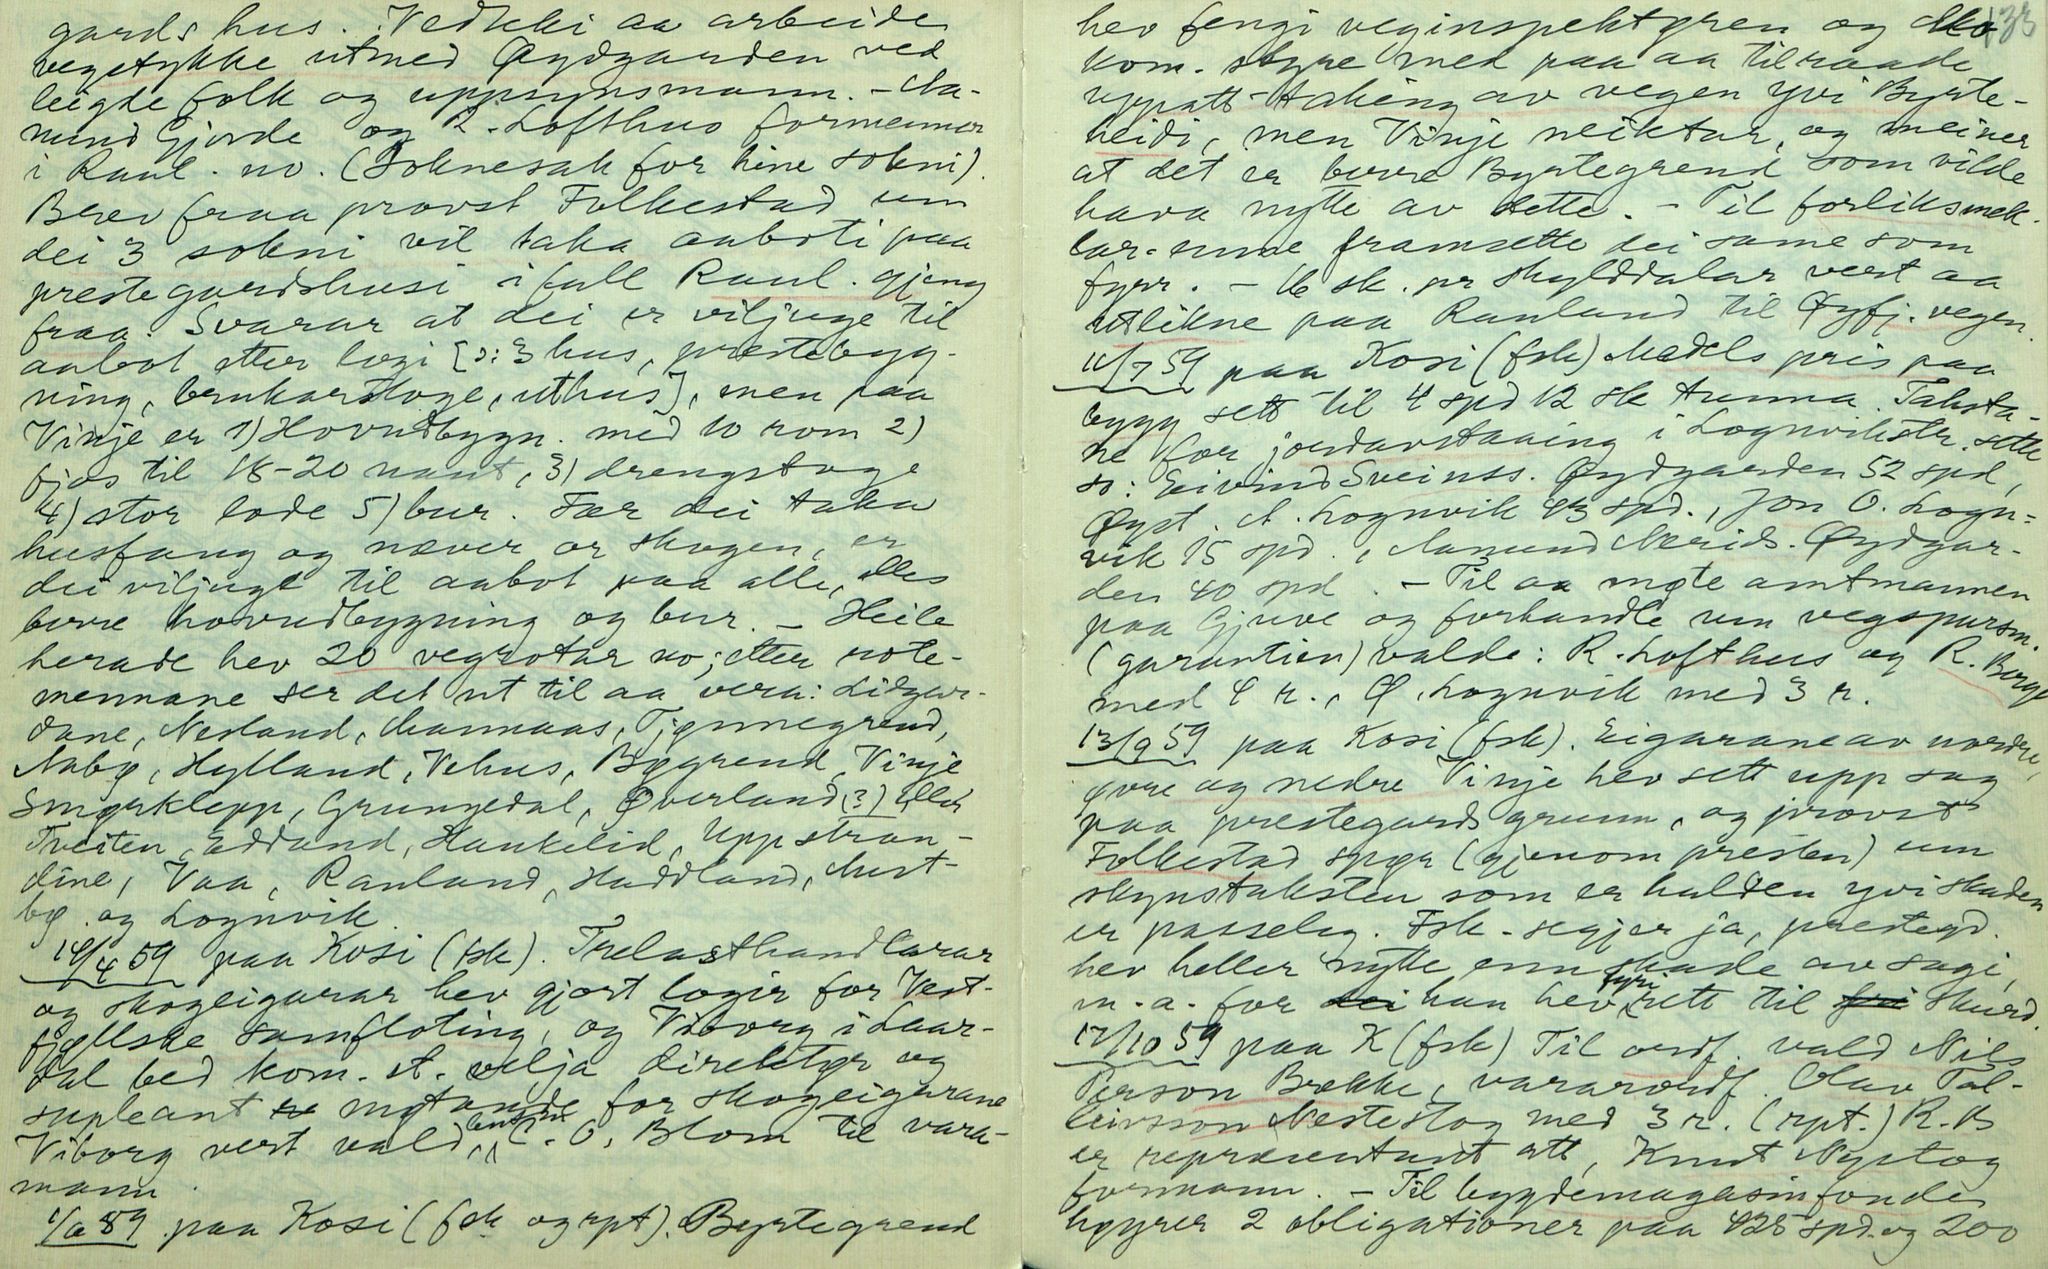 gards hus. Vedteki aa arbeide
vegstykke utmed Øydgarden ved
leigde folk og uppsynsmann. - Aa-
mund Gjorde og R. Lofthus formenner
i Raul. no. (Soknesak for hine sokni).
Brev fraa provst Folkestad um
dei 3 sokni vil taka aaboti paa
prestegardshusi ifall Raul. gjeng
fraa. Svarar at dei er viljuge til
aabot etter logi [ɔ: 3 hus, prestebyg-
ning, brukarstoge, uthus], men paa
Vinje er 1) Hovudbygn. med 10 rom 2)
fjøs til 18-20 naut, 3) drengstoge
4) stor lode 5) bur. Fær dei taka
husfang og næver or skogen, er
dei viljugt til aabot paa alle, elles
berre hovudbygning og bur. - Heile
herade hev 20 vegrotar no; etter rote-
mennane ser det ut til aa vera: Lidgar-
dane, Nesland, Aamnaas, Tjønnegrend,
Nabø, Hylland, Vehus, Bøgrend, Vinje
Smørklepp, Grungedal, Øverland (?) eller
Tveiten, Edland, Haukelid, Uppstran-
dine, Vaa, Rauland, Haddland, Aust-
bø og Lognvik.
14/4 59 paa Kosi (fsk). Trelasthandlarar
og skogeigarar hev gjort logir for Vest-
fjellske samfloting, og Viborg i Laar-
dal bed kom. st. velja direktør og
supleant møtande for skogeigarane
Viborg vert vald, lensm. C. O. Blom til vara-
mann.
1/6 59 paa Kosi (fsk og rpt). Byrtegrend
hev fengi veginspektøren og Mo 133
kom. styre med paa aa tilraade
uppatt-taking av vegen yvi Byrte-
heidi, men Vinje neiktar, og meiner
at det er berre Byrtegrend som vilde
hava nytte av dette. - Til forliksmek-
lar-emne framsette dei same som
fyrr. - 16 sk. pr skylddalar vert aa
utlikne paa Rauland til Øyfj. vegen.
11/7 59 paa Kosi (fsk) Medels pris paa
bygg sett til 4 spd 12 sk tunna. Taksta-
ne for jordavstaaing i Lognvikstr. sette
so: Eivind Sveinss. Øydgarden 52 spd,
Øyst. A. Lognvik 43 spd., Jon O. Logn-
vik 15 spd., Aamund Nerids. Øydgar-
den 40 spd. - Til aa møte amtmannen
paa Gjuve og forhandle um vegspursm.
(garantien) valde: R. Lofthus og R. Berge
med 4 r., Ø. Lognvik med 3 r.
13/9 59 paa Kosi (fsk). Eigarane av nordre,
øvre og nedre Vinje hev sett upp sag
paa prestegards grunn, og provst
Folkestad spør (gjenom presten) um
skynstaksten som er halden yvi skaden
er passeleg. Fsk. segjer ja, prestegd.
hev heller nytte enn skade av sagi,
m. a. for dei han hev fyre rett til fri skurd.
17/10 59 paa K (fsk) Til ordf. vald Nils
Person Bække, varaordf. Olav Tal-
leivsson Nestestog med 3 r. (rpt.) R. B
er representant att, Knut Nystog
formann. - Til bygdemagasinfonde
høyrer 2 obligationer paa 425 spd. og 200